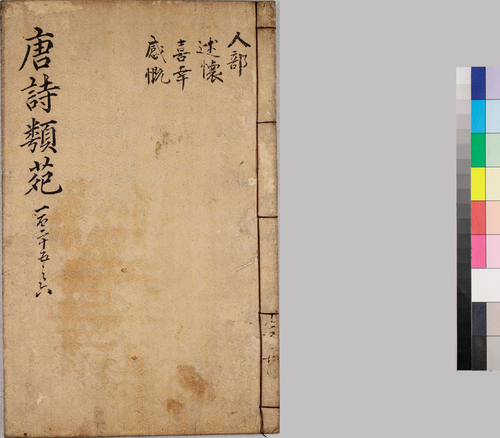 人部
述懷
喜幸
感慨
唐詩類苑
一百二十五之六